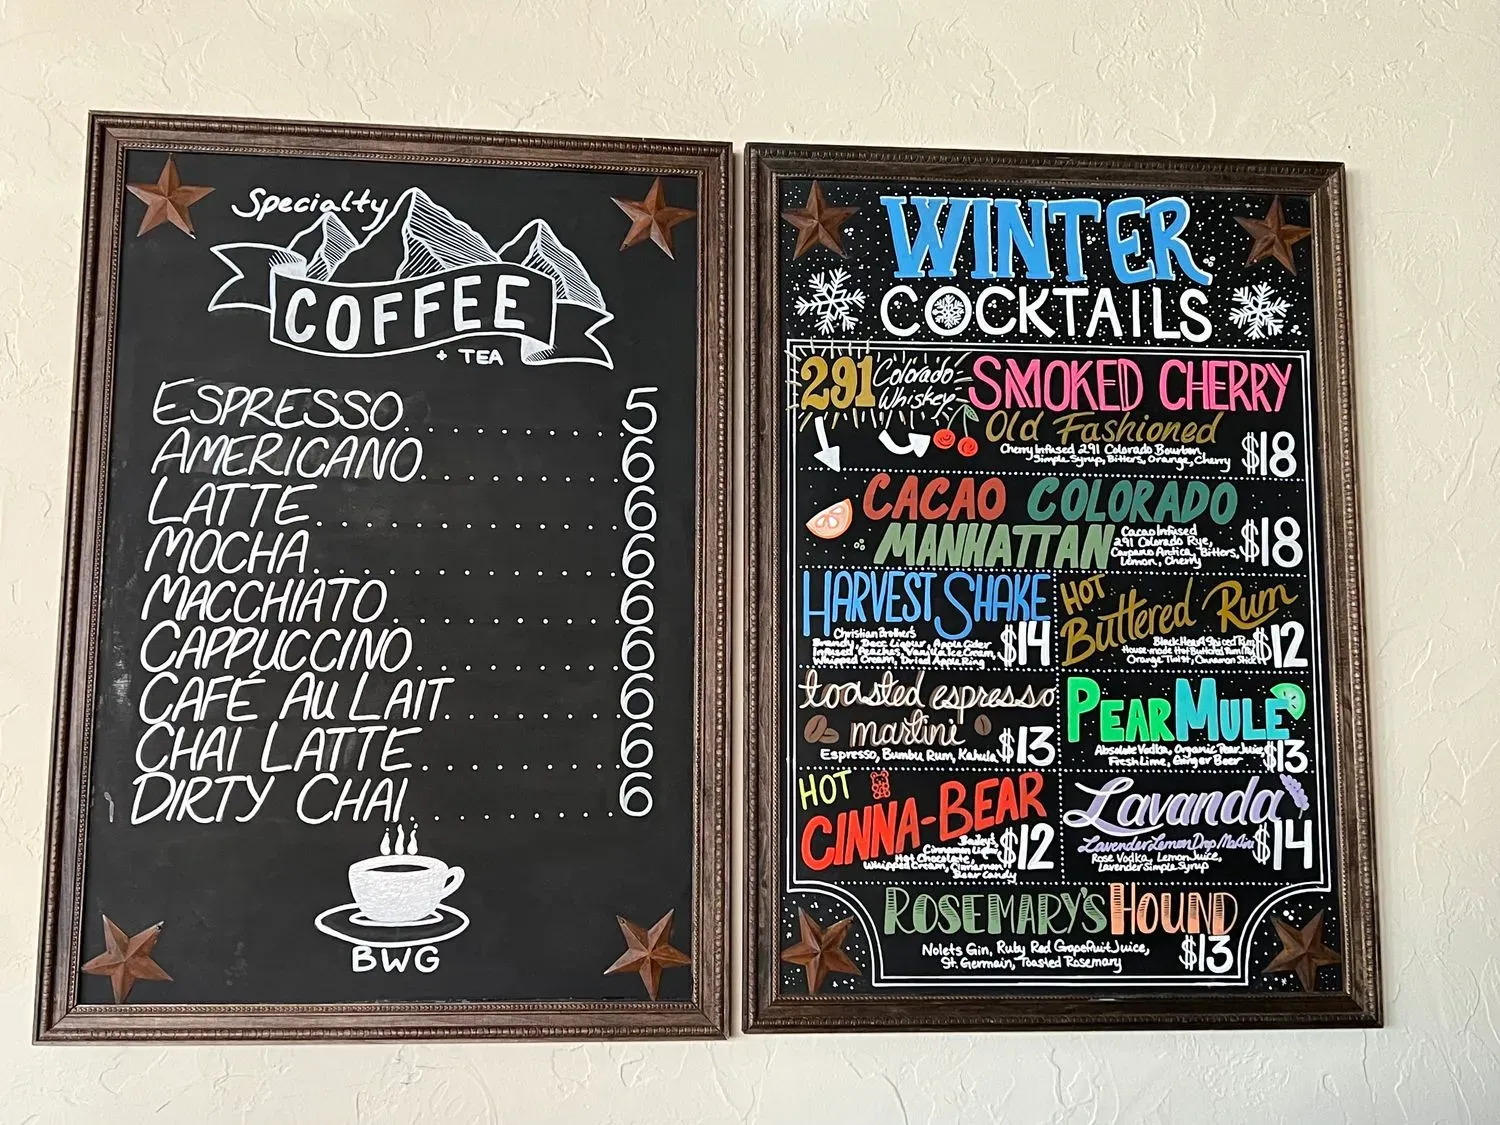 Specialty
COFFEE
+ TEA
ESPRESSO 5
AMERICANO 6
LATTE 6
MOCHA 6
MACCHIATO 6
CAPPUCCINO 6
CAFÉ AU LAIT 6
CHAI LATTE 6
DIRTY CHAI 6
BWG
WINTER
COCKTAILS
291 Colorado Whiskey SMOKED CHERRY
Old Fashioned
Cherry Infused 291 Colorado Bourbon,
Simple Syrup, Bitters, Orange, Cherry
$18
CACAO COLORADO
MANHATTAN
Cacao Infused
291 Colorado Rye,
Carpano Antica, Bitters,
Lemon, Cherry
$18
HARVEST SHAKE
Christian Brother's
Brandy, Apple Cider
Infused Peaches, Vanilla Ice Cream,
Whipped Cream, Dried Apple Ring
$14
HOT
Buttered Rum
Spiced Rum,
House-made Hot Buttered Rum
Orange Twist, Cinnamon Stick
$12
toasted espresso
martini
Espresso, Bumbu Rum, Kahula
$13
PEAR MULE
Absolute Vodka, Organic Pear Juice
Fresh Lime, Ginger Beer
$13
HOT
CINNA-BEAR
Baileys
Cinnamon
Hot Chocolate,
Whipped Cream, Cinnamon
Bear Candy
$12
Lavanda
Lavender Lemon Drop Martini
Rose Vodka, Lemon Juice,
Lavender Simple Syrup
$14
ROSEMARY'S HOUND
Nolets Gin, Ruby Red Grapefruit Juice,
St. Germain, Toasted Rosemary
$13